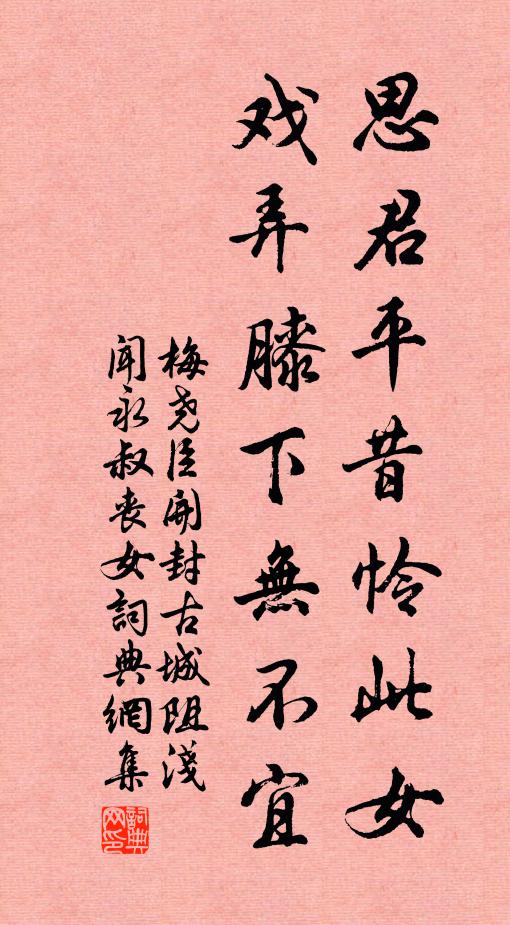 思君平昔怜此女
戏弄膝下無不宜
梅尧臣開封古城阻淺
闻永叔丧女詞典網集
詞典网印